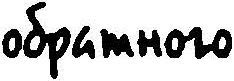 обратного